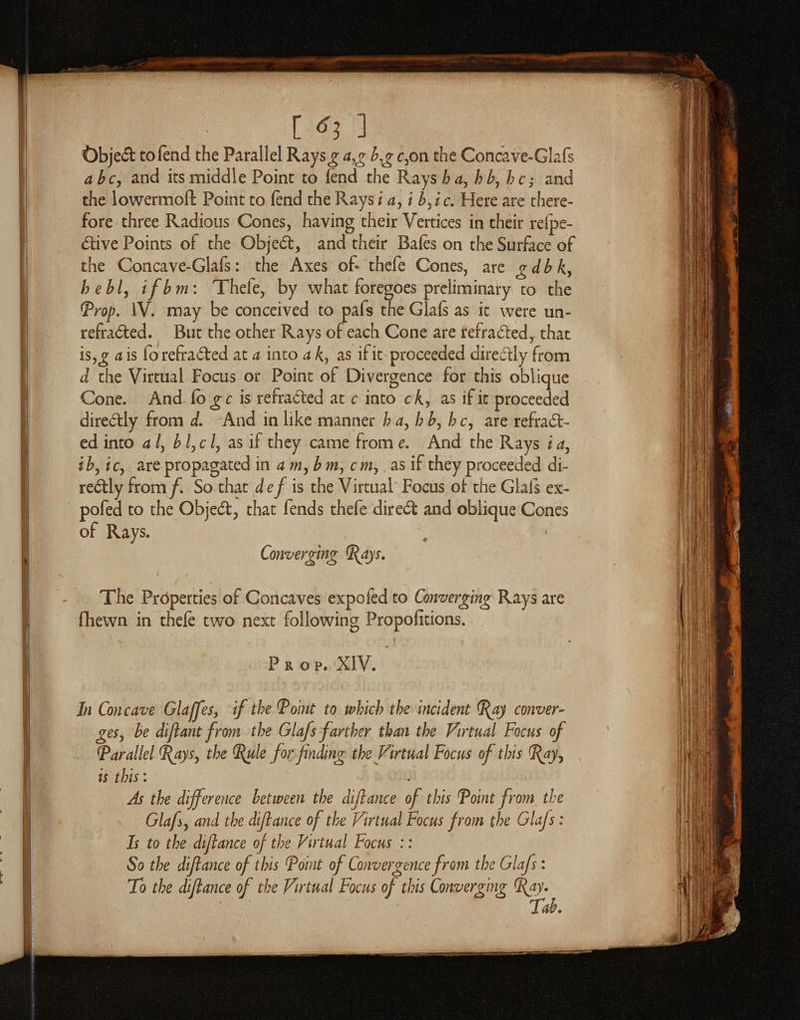 [ 63 ]
Object to ſend the Parallel Rays g a, g b, g c, on the Concave-Glaſs
abc, and its middle Point to ſend the Rays h a, h b, h c; and
the lowermoſt Point to ſend the Rays i a, i b, i c. Here are there-
fore three Radious Cones, having their Vertices in their reſpe-
ctive Points of the Object, and their Baſes on the Surface of
the Concave-Glaſs: the Axes of theſe Cones, are g d b k,
h e b l, i f b m: Theſe, by what foregoes preliminary to the
Prop. IV. may be conceived to paſs the Glaſs as it were un-
refracted. But the other Rays of each Cone are refracted, that
is, g a is ſo refracted at a into a k, as if it proceeded directly from
d the Virtual Focus or Point of Divergence for this oblique
Cone. And ſo g c is refracted at c into c k, as if it proceeded
directly from d. And in like manner h a, h b, h c, are refract-
ed into a l, b l, c l, as if they came from e. And the Rays i a,
i b, i c, are propagated in a m, b m, c m, as if they proceeded di-
rectly from f. So that d e f is the Virtual Focus of the Glaſs ex-
poſed to the Object, that ſends theſe direct and oblique Cones
of Rays.
Converging Rays.
The Properties of Concaves expoſed to Converging Rays are
ſhewn in theſe two next following Propoſitions.
Prop. XIV.
In Concave Glaſſes, if the Point to which the incident Ray conver-
ges, be diſtant from the Glaſs farther than the Virtual Focus of
Parallel Rays, the Rule for finding the Virtual Focus of this Ray,
is this:
As the difference between the diſtance of this Point from the
Glaſs, and the diſtance of the Virtual Focus from the Glaſs:
Is to the diſtance of the Virtual Focus ::
So the diſtance of this Point of Convergence from the Glaſs:
To the diſtance of the Virtual Focus of this Converging Ray.
Tab.